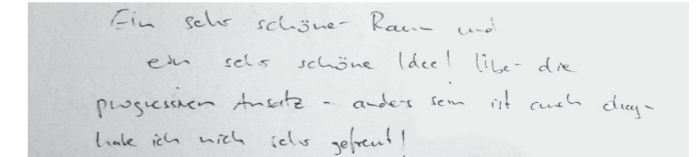 Ein sehr schöner Raum und
ein sehr schöne Idee! Über die
progressiven Ansatz - anders sein ist auch
habe ich mich sehr gefreut!